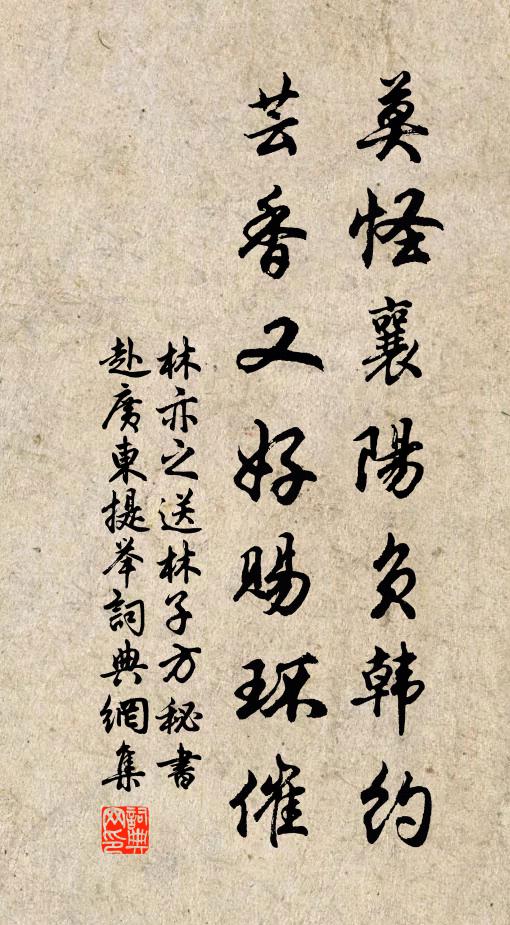 莫怪襄陽負韩約
芸香又好賜环催
林亦之送林子方秘書
赴廣東提举詞典網集
詞典网印